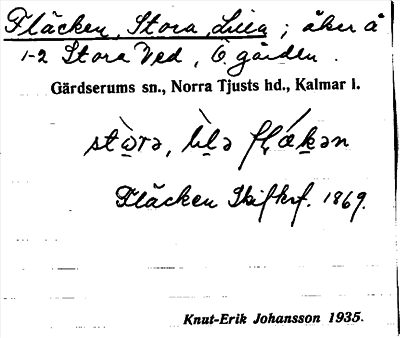 Fläcken, Stora, Lilla ; åker å
1-2 Stora Ved, Ö. gården.
Gärdserums sn., Norra Tjusts hd., Kalmar l.
stòra, lìla flǽkən
Fläcken Skifkrf. 1869.
Knut-Erik Johansson 1935.